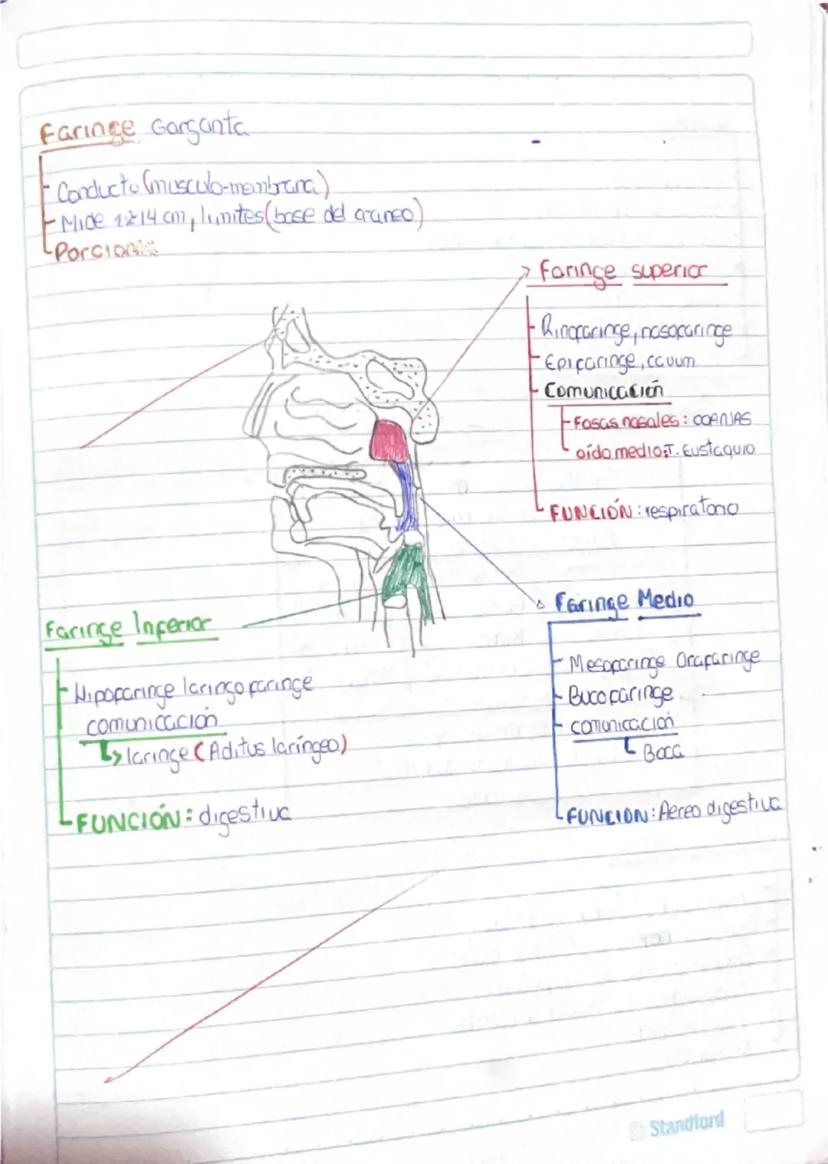 Faringe Garganta
Conducto (musculo-membrana)
Mide 12-14 cm, limites (base del craneo)
Porciones
Faringe superior
Rinofaringe, nasofaringe
Epifaringe, cavum
Comunicación
Fosas nasales: COANAS
oído medio: T. Eustaquio
FUNCIÓN: respiratorio
Faringe Inferior
Hipofaringe laringofaringe
comunicación
laringe (Aditus laríngeo)
FUNCIÓN: digestiva
Faringe Medio
Mesofaringe Orafaringe
Bucofaringe
comunicación
Boca
FUNCION: Aereo digestiva
Standford